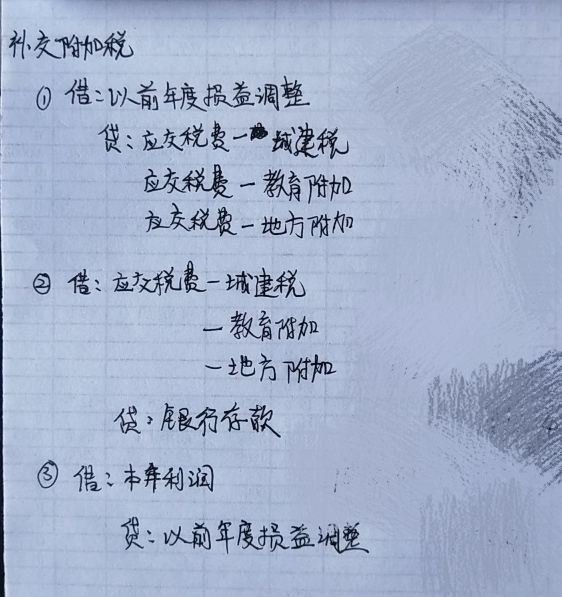 补交附加税
① 借:以前年度损益调整
贷:应交税费-城建税
应交税费-教育附加
应交税费-地方附加
② 借:应交税费-城建税
-教育附加
-地方附加
贷:银行存款
③ 借:本年利润
贷:以前年度损益调整